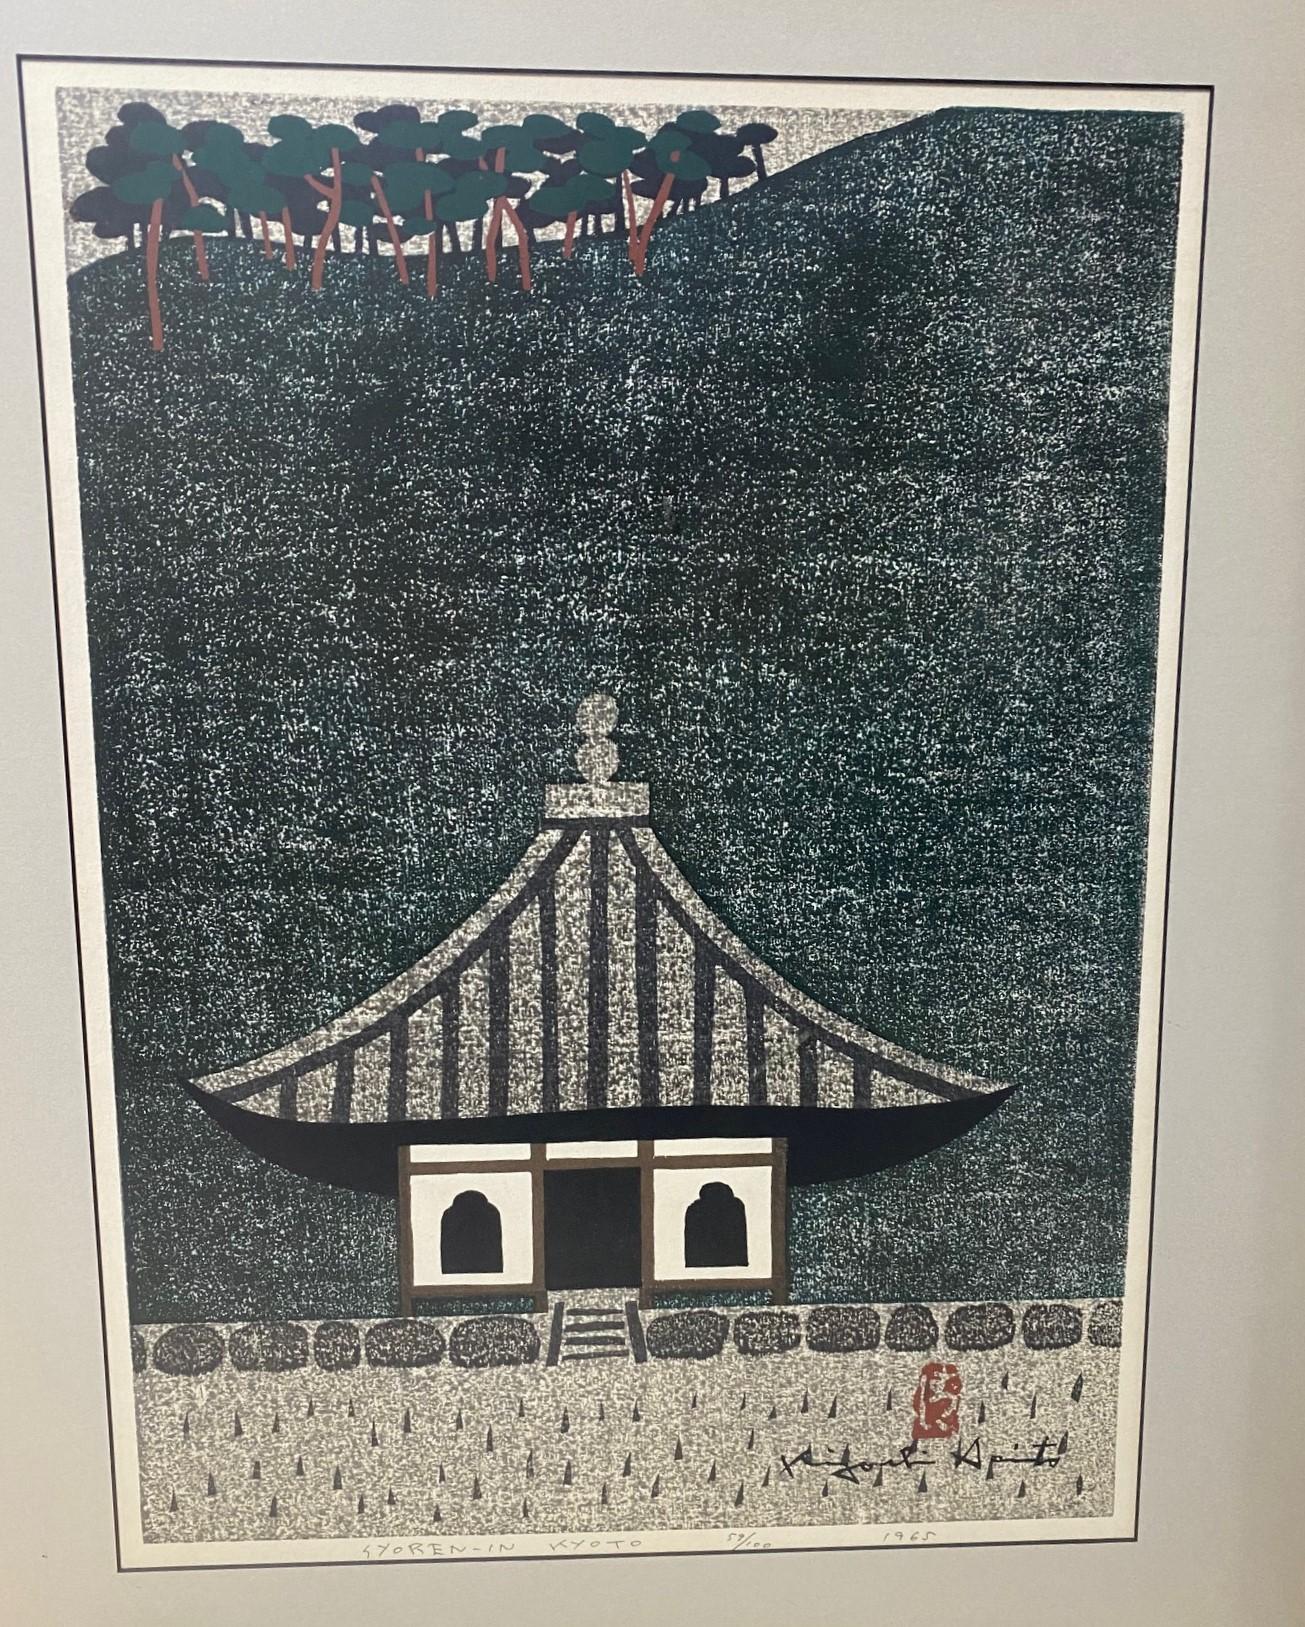 Kiyoshi Saito
SYOREN-IN KYOTO 59/100 1965